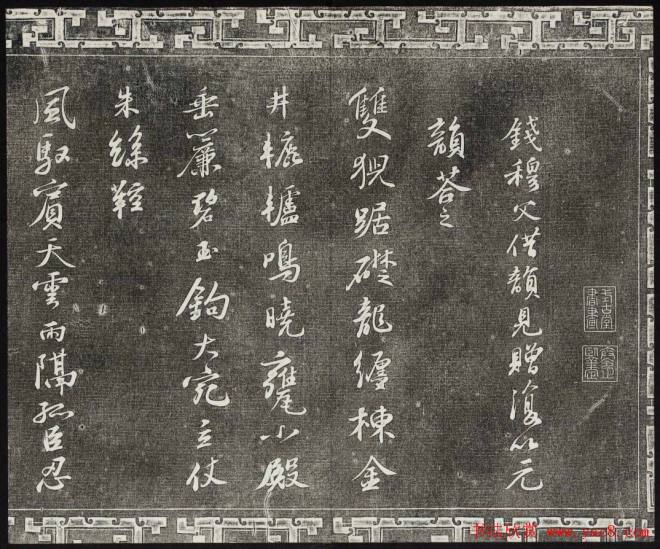 錢穆父借韻見贈復以元
韻荅之
雙猊踞礎龍纏棟金
井轆轤鳴曉甕小殿
垂簾碧玉鉤大宛立仗
朱絲鞚
風馭賓天雲雨隔孤臣忍
www.yac8.com